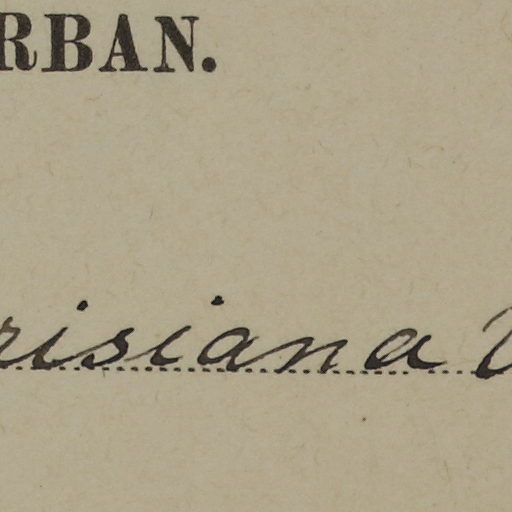 RBAN.
risiana